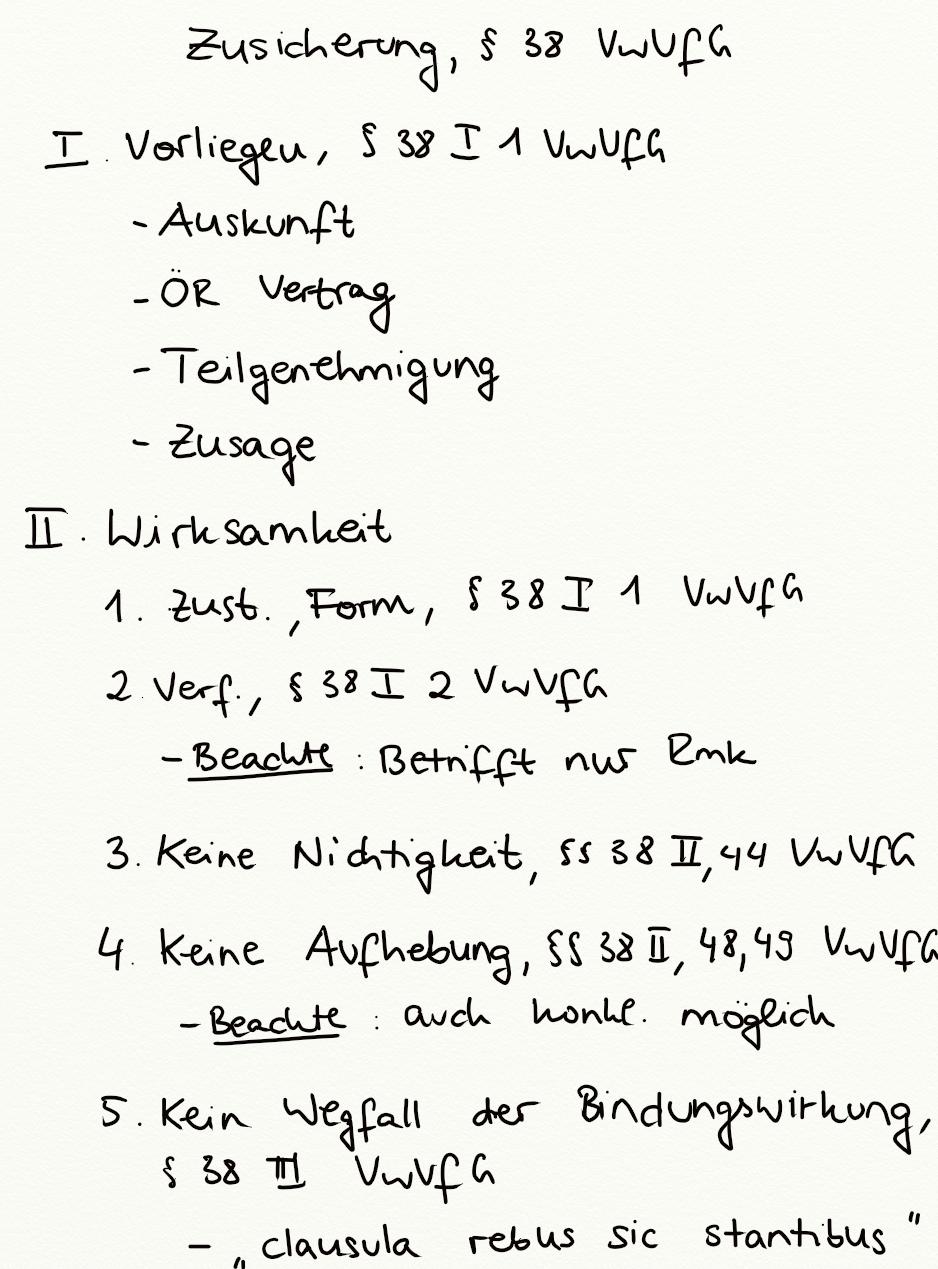 Zusicherung, § 38 VwVfG
I. Vorliegen, § 38 I 1 VwVfG
- Auskunft
- ÖR Vertrag
- Teilgenehmigung
- Zusage
II. Wirksamkeit
1. Zust., Form, § 38 I 1 VwVfG
2. Verf., § 38 I 2 VwVfG
- Beachte: Betrifft nur Rmk
3. Keine Nichtigkeit, §§ 38 II, 44 VwVfG
4. Keine Aufhebung, §§ 38 II, 48, 49 VwVfG
- Beachte: auch konkl. möglich
5. Kein Wegfall der Bindungswirkung,
§ 38 III VwVfG
- „clausula rebus sic stantibus"